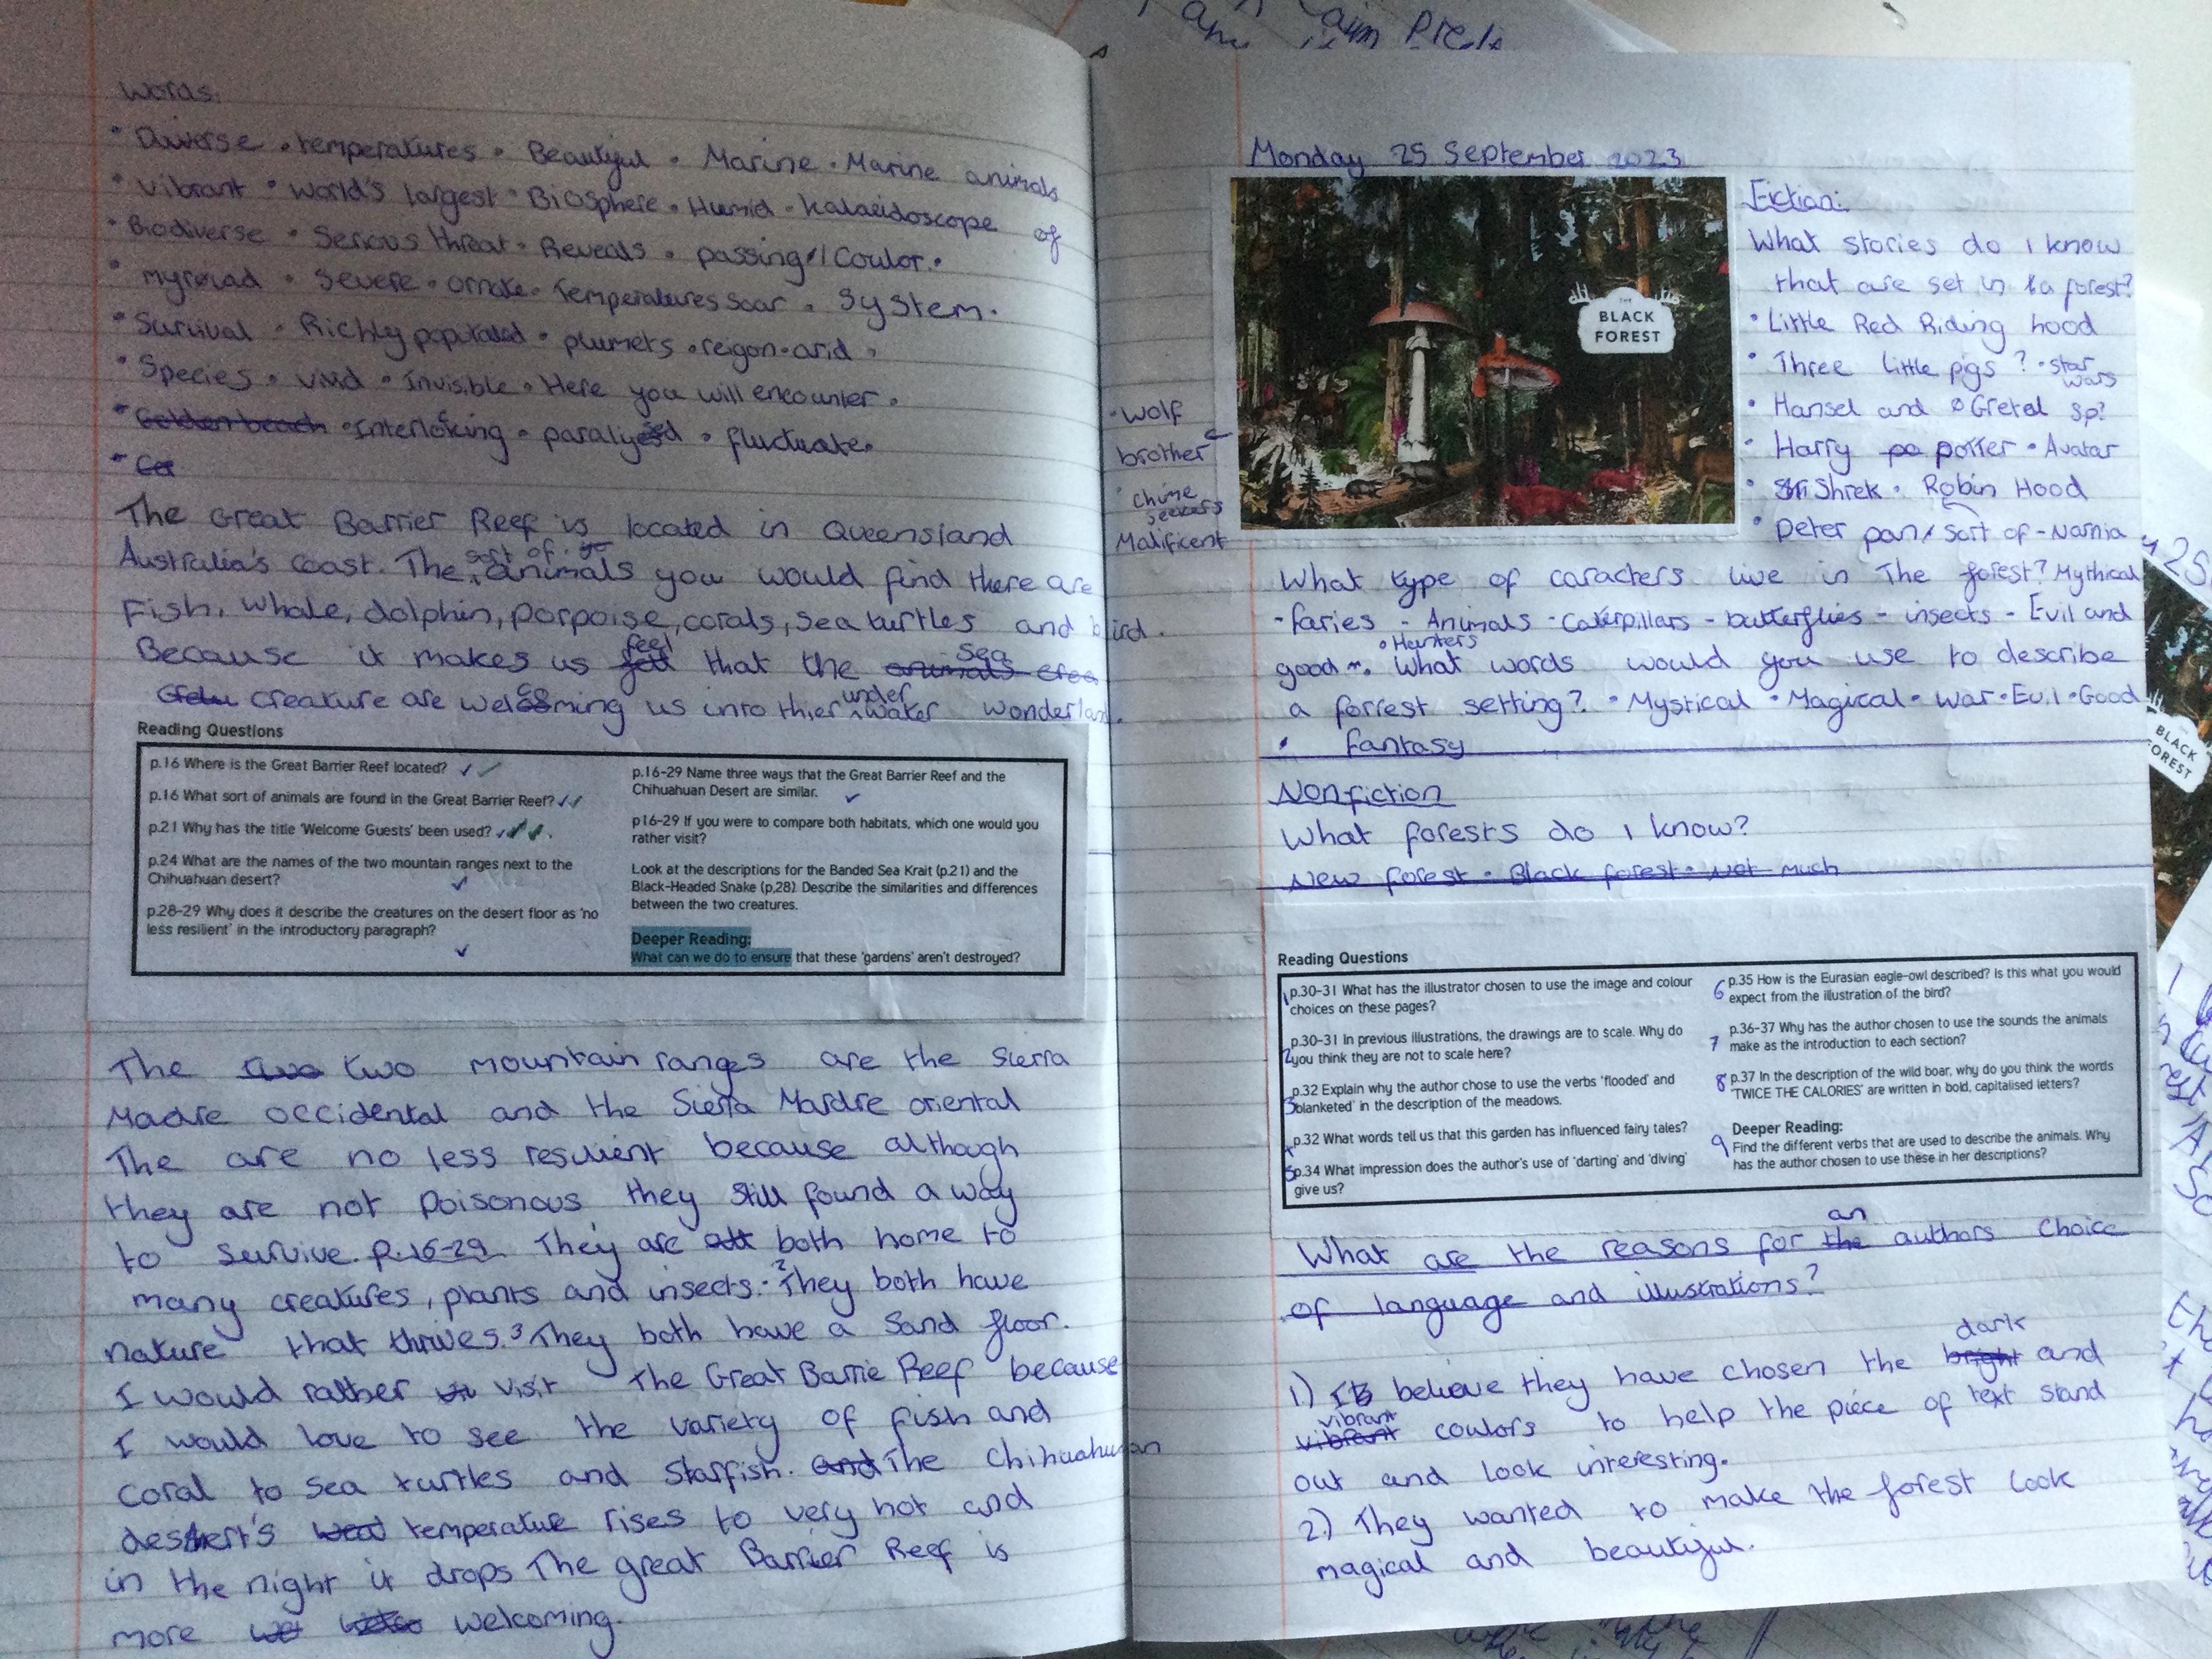 Words:
• Diverse • temperatures • Beautiful • Marine • Marine animals
• Vibrant • World's largest • Biosphere • Humid • Kalaeidoscope of
• Biodiverse • Serious threat • Reveals • passing // Coulor •
• myroiad • Severe • ornate • Temperatures soar • System •
• Survival • Richly populated • plumets • reigon • arid •
• Species • vivid • Invisible • Here you will encounter •
• Golden beach • Interlocking • paralysed • fluctuate •
• Ge
The Great Barrier Reef is located in Queensland
Australia's coast. The sort of animals you would find there are
Fish, whale, dolphin, porpoise, corals, sea turtles and bird.
Because it makes us feel that the animals sea
creature are welcoming us into thier under water wonderland.
Reading Questions
p.16 Where is the Great Barrier Reef located?
p.16 What sort of animals are found in the Great Barrier Reef?
p.21 Why has the title 'Welcome Guests' been used?
p.24 What are the names of the two mountain ranges next to the
Chihuahuan desert?
p.28-29 Why does it describe the creatures on the desert floor as 'no
less resilient' in the introductory paragraph?
p.16-29 Name three ways that the Great Barrier Reef and the
Chihuahuan Desert are similar.
p16-29 If you were to compare both habitats, which one would you
rather visit?
Look at the descriptions for the Banded Sea Krait (p.21) and the
Black-Headed Snake (p.28). Describe the similarities and differences
between the two creatures.
Deeper Reading:
What can we do to ensure that these 'gardens' aren't destroyed?
The two mountain ranges are the Sierra
Madre occidental and the Sierra Mardre oriental
The are no less resilient because although
they are not Poisonous they still found a way
to survive. p.16-29 They are both home to
many creatures, plants and insects. 2 They both have
nature that thrives. 3 They both have a Sand floor.
I would rather visit The Great Barrie Reef because
I would love to see the variety of fish and
coral to sea turtles and starfish. and The Chihuahuan
desert's temperature rises to very hot and
in the night it drops The great Barrier Reef is
more welcoming.
Monday 25 September 2023
THE
BLACK
FOREST
Fiction:
What stories do I know
that are set in a forest?
• Little Red Riding hood
• Three little pigs ? • star wars
• Hansel and Gretal sp?
• Harry po potter • Avatar
• Shrek • Robin Hood
• Peter pan / sort of - Narnia
• wolf
brother
• chime
seekers
Malificent
What type of caracters live in The forest? Mythical
- faries - Animals - Caterpillars - butterflies - insects - Evil and
good • Hunters What words would you use to describe
a forrest setting? • Mystical • Magical • War • Evil • Good
• Fantasy
Nonfiction
What forests do I know?
New forest • Black forest • not much
Reading Questions
1 p.30-31 What has the illustrator chosen to use the image and colour
choices on these pages?
2 p.30-31 In previous illustrations, the drawings are to scale. Why do
you think they are not to scale here?
3 p.32 Explain why the author chose to use the verbs 'flooded' and
'blanketed' in the description of the meadows.
4 p.32 What words tell us that this garden has influenced fairy tales?
5 p.34 What impression does the author's use of 'darting' and 'diving'
give us?
6 p.35 How is the Eurasian eagle-owl described? Is this what you would
expect from the illustration of the bird?
7 p.36-37 Why has the author chosen to use the sounds the animals
make as the introduction to each section?
8 p.37 In the description of the wild boar, why do you think the words
'TWICE THE CALORIES' are written in bold, capitalised letters?
9 Deeper Reading:
Find the different verbs that are used to describe the animals. Why
has the author chosen to use these in her descriptions?
What are the reasons for the an authors choice
of language and illustrations?
1) I believe they have chosen the bright dark and
vibrant vibrant coulors to help the piece of text stand
out and look interesting.
2.) They wanted to make the forest look
magical and beautiful.
BLACK
FOREST